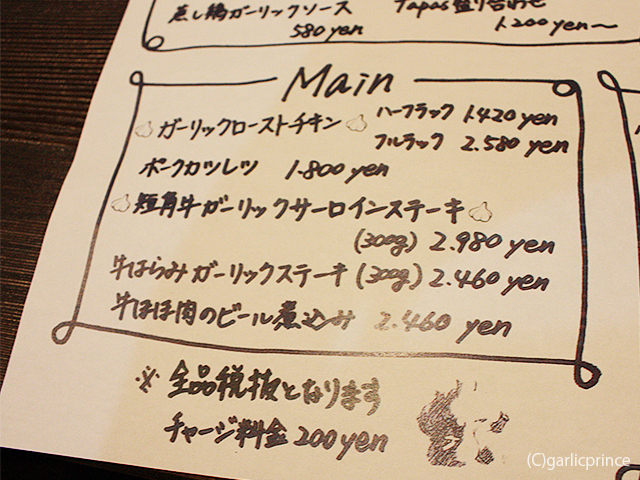 蒸し鶏ガーリックソース
580 yen
Tapas盛り合わせ
1.200 yen～
Main
ガーリックローストチキン ハーフラック 1.420 yen
フルラック 2.580 yen
ポークカツレツ 1.800 yen
短角牛ガーリックサーロインステーキ
(300g) 2.980 yen
牛はらみガーリックステーキ (300g) 2.460 yen
牛ほほ肉のビール煮込み 2.460 yen
※ 全品税抜となります
チャージ料金 200 yen
(C)garlicprince